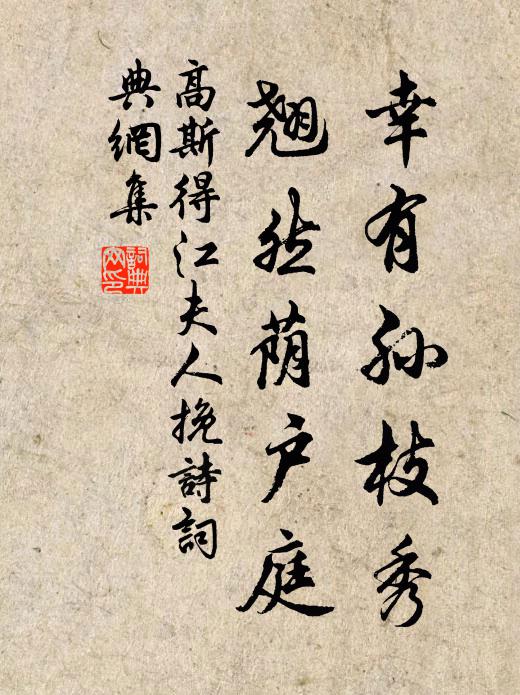 幸有孙枝秀
翘然荫户庭
高斯得江夫人挽詩詞
典網集
詞典